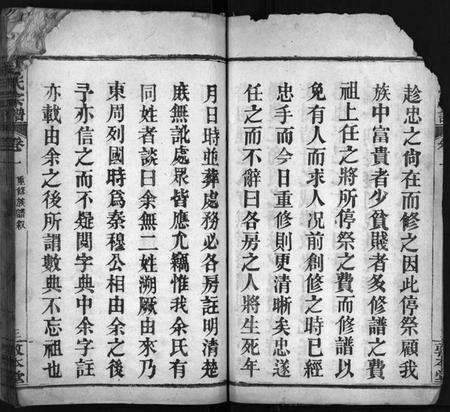 趁忠之尙在而修之因此停祭顧我
族中富貴者少貧賤者多修譜之費
祖上任之將所停祭之費而修譜以
免有人而求人况前創修之時已經
忠手而今日重修則更清晰矣忠遂
任之而不辭曰各房之人將生死年
月日時並葬處務必各房註明清楚
底無訛處眾皆應允竊惟我余氏有
同姓者談曰余無二姓溯厥由來乃
東周列國時爲秦穆公相由余之後
予亦信之而不疑閱字典中余字註
亦載由余之後所謂數典不忘祖也
氏宗譜
卷一
重修族譜敘
敦本堂